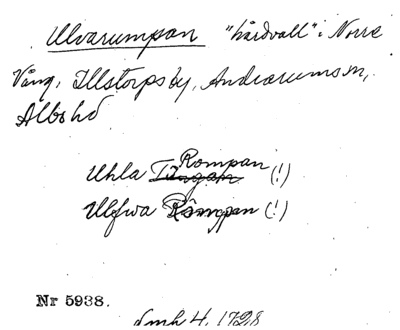 Ulvarumpan "hårdvall" i Norra
Vång, Illstorps by, Andrarums sn,
Albo hd
Rompan
Uhla Tångan (!)
Ulfwa Rompan (!)
Nr 5938.
lmh 4, 1728